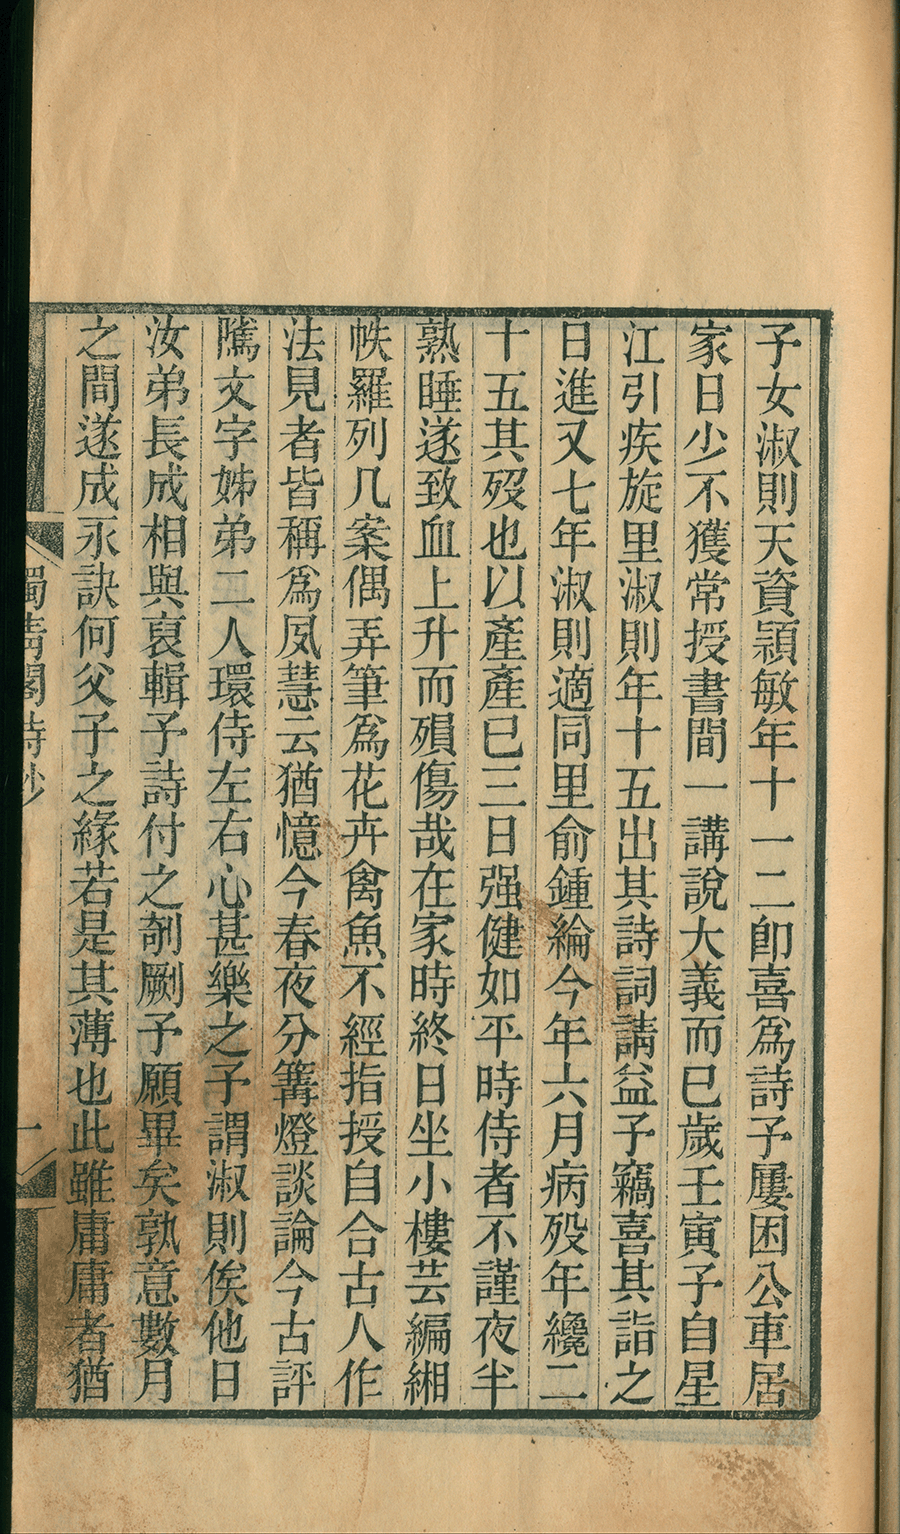 子女淑則天資頴敏年十一二卽喜爲詩予屢困公車居
家日少不獲常授書間一講說大義而已歲壬寅予自星
江引疾旋里淑則年十五出其詩詞請益予竊喜其詣之
日進又七年淑則適同里俞鍾綸今年六月病歿年纔二
十五其歿也以產產已三日强健如平時侍者不謹夜半
熟睡遂致血上升而殞傷哉在家時終日坐小樓芸編緗
帙羅列几案偶弄筆爲花卉禽魚不經指授自合古人作
法見者皆稱爲夙慧云猶憶今春夜分篝燈談論今古評
隲文字姊弟二人環侍左右心甚樂之予謂淑則俟他日
汝弟長成相與裒輯予詩付之剞劂予願畢矣孰意數月
之間遂成永訣何父子之緣若是其薄也此雖庸庸者猶
獨清閣詩鈔
一